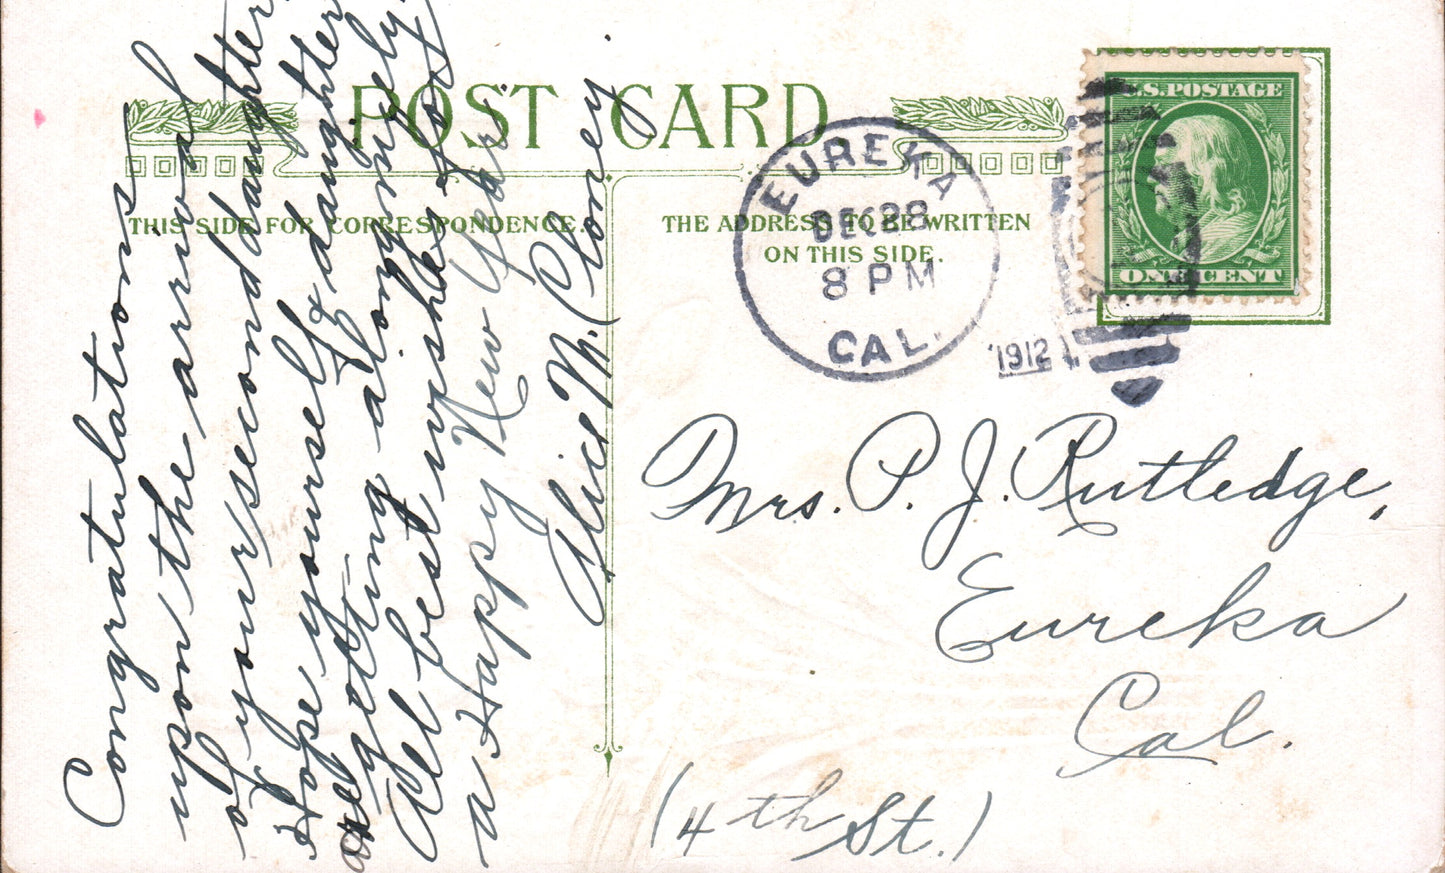 POST CARD
THIS SIDE FOR CORRESPONDENCE.
THE ADDRESS TO BE WRITTEN
ON THIS SIDE.
Congratulations
upon the arrival
of your second daughter.
Hope yourself & daughter
are getting along nicely.
All best wishes for
a Happy New Year
Alice M. Cloney.
EUREKA
DEC 28
8 PM
CAL.
1912
U.S. POSTAGE
ONE CENT
Mrs. P. J. Rutledge,
Eureka
Cal.
(4th St.)